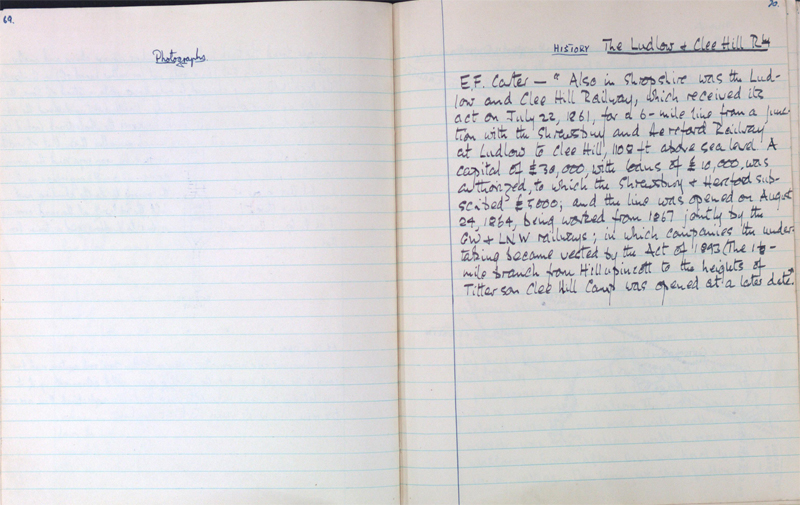 69.
Photographs
70.
HISTORY The Ludlow & Clee Hill Rly
E.F. Carter — " Also in Shropshire was the Lud-
low and Clee Hill Railway, which received its
act on July 22, 1861, for a 6-mile line from a junc-
tion with the Shrewsbury and Hereford Railway
at Ludlow to Clee Hill, 1108 ft above sea level. A
capital of £30,000, with loans of £10,000, was
authorized, to which the Shrewsbury & Hereford sub-
scribed £5000; and the line was opened on August
24, 1864, being worked from 1867 jointly by the
GW & LNW railways; in which companies the under-
taking became vested by the Act of 1893 (The
mile branch from to the heights of
Titterson Clee Hill Camp was opened at a later date."